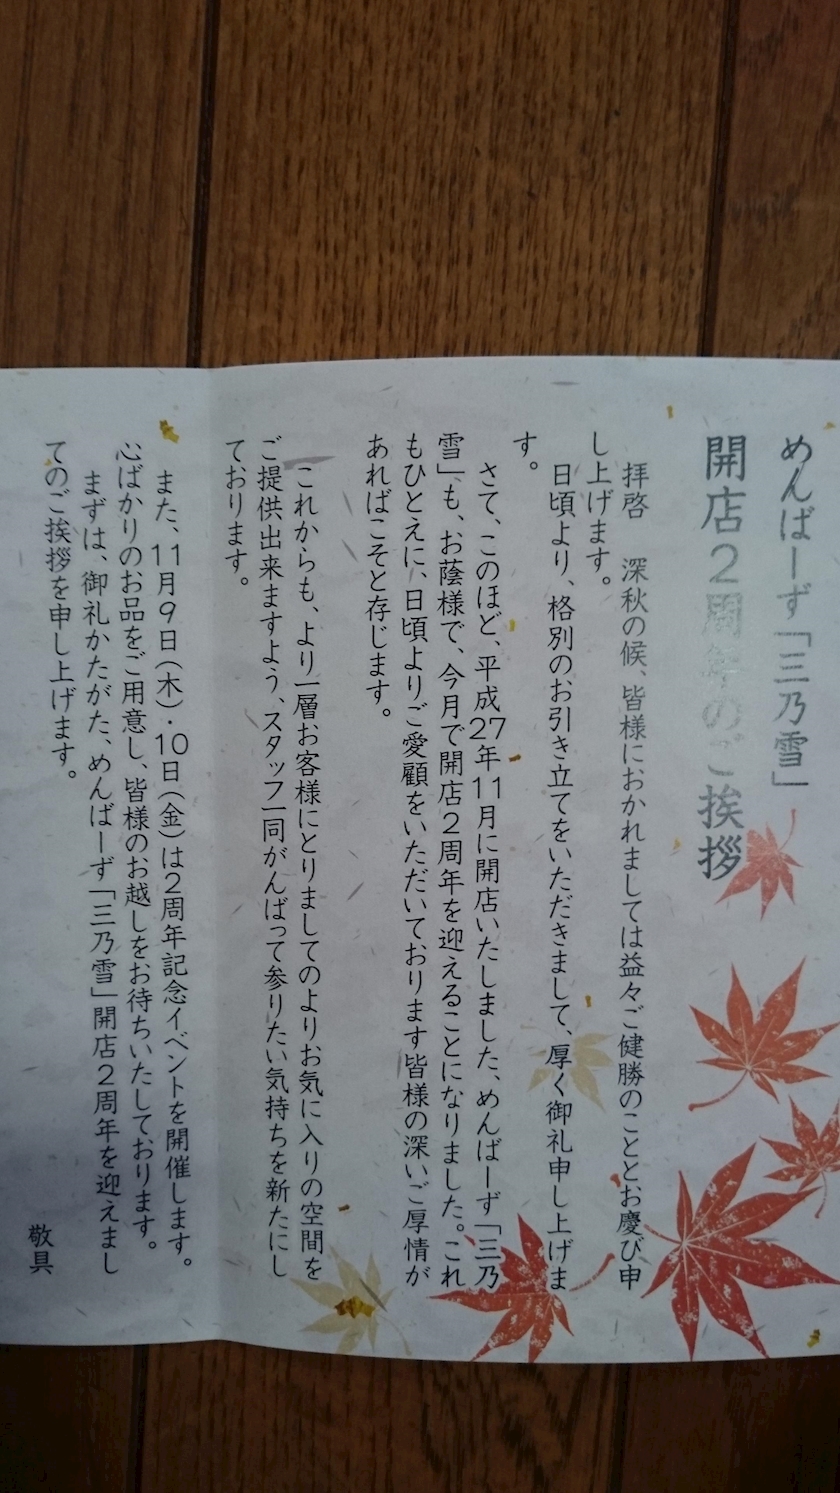 めんばーず「三乃雪」
開店２周年のご挨拶
拝啓　深秋の候、皆様におかれましては益々ご健勝のこととお慶び申
し上げます。
日頃より、格別のお引き立てをいただきまして、厚く御礼申し上げま
す。
さて、このほど、平成27年11月に開店いたしました、めんばーず「三乃
雪」も、お蔭様で、今月で開店２周年を迎えることになりました。これ
もひとえに、日頃よりご愛顧をいただいております皆様の深いご厚情が
あればこそと存じます。
これからも、より一層お客様にとりましてのよりお気に入りの空間を
ご提供出来ますよう、スタッフ一同がんばって参りたい気持ちを新たにし
ております。
また、11月９日（木）・10日（金）は２周年記念イベントを開催します。
心ばかりのお品をご用意し、皆様のお越しをお待ちいたしております。
まずは、御礼かたがた、めんばーず「三乃雪」開店２周年を迎えまし
てのご挨拶を申し上げます。
敬具